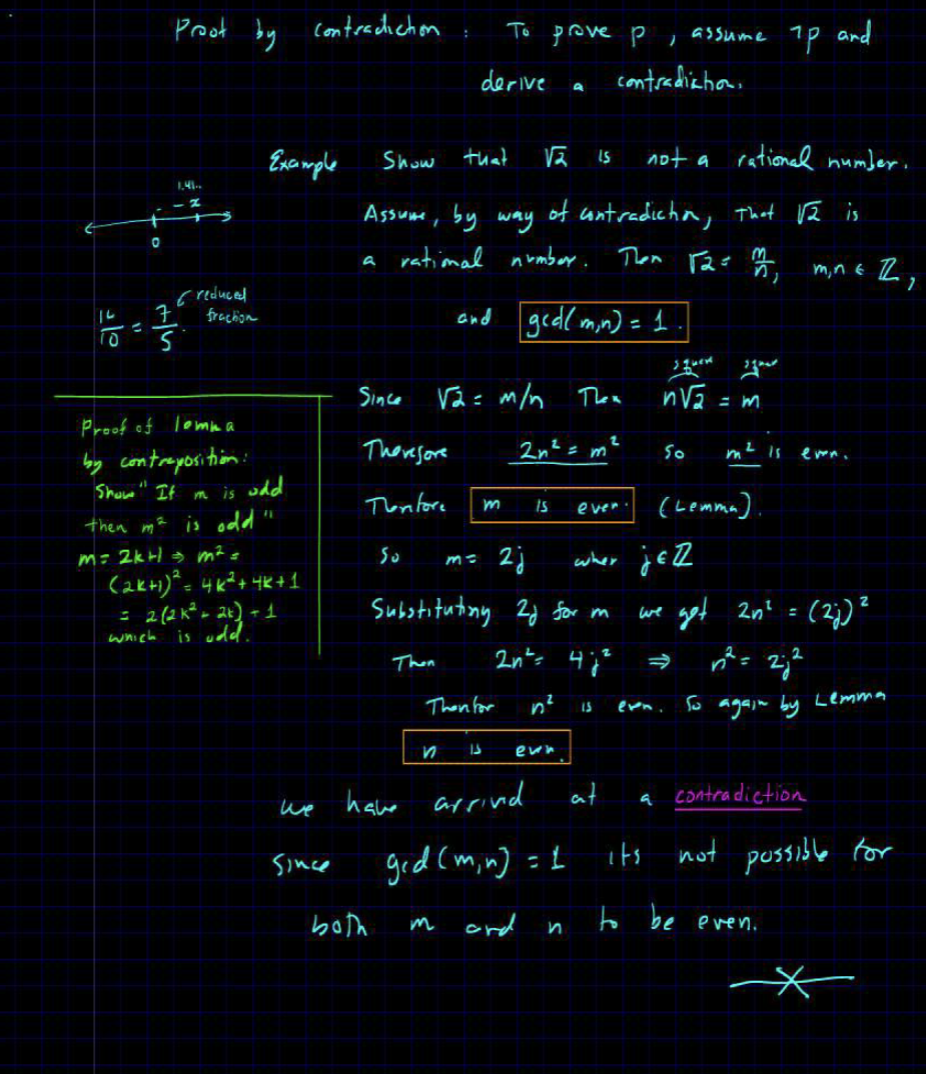 Proof by contradiction : To prove p , assume ¬p and
derive a contradiction.
Example Show that √2 is not a rational number.
1.41..
0
Assume, by way of contradiction, that √2 is
a rational number. Then √2 = m/n, m,n ∈ ℤ,
and gcd(m,n) = 1.
14/10 = 7/5. reduced
fraction
square square
Since √2 = m/n Then n√2 = m
Therefore 2n² = m² so m² is even.
Therefore m is even. (Lemma).
So m = 2j where j ∈ ℤ
Substituting 2j for m we get 2n² = (2j)²
Then 2n² = 4j² ⇒ n² = 2j²
Therefor n² is even. So again by Lemma
n is even.
Proof of lemma
by contraposition:
Show "If m is odd
then m² is odd"
m = 2k+1 ⇒ m² =
(2k+1)² = 4k² + 4k + 1
= 2(2k² + 2k) + 1
which is odd.
we have arrived at a contradiction
since gcd(m,n) = 1 its not possible for
both m and n to be even.